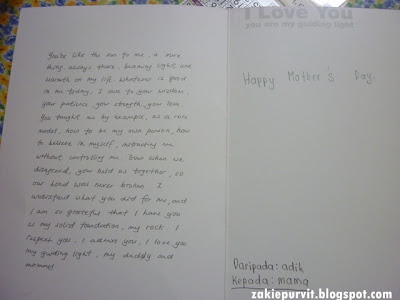 You're like the sun to me, a sure
thing, always there, beaming light and
warmth on my life. Whatever is good
in me today, I owe to your wisdom,
your patience your strength, your love.
You taught me by example, as a role
model, how to be my own person, how
to believe in myself, instructing me
without controlling me. Even when we
disagreed, you held us together, so
our bond was never broken I
understand what you did for me, and
I am so grateful that I have you
as my solid foundation, my rock I
respect you, I admire you, I love you
my guiding light, my daddy and
mommy
I Love You
you are my guiding light
Happy Mother's Day.
Daripada: adik
Kepada: mama
zakiepurvit.blogspot.com